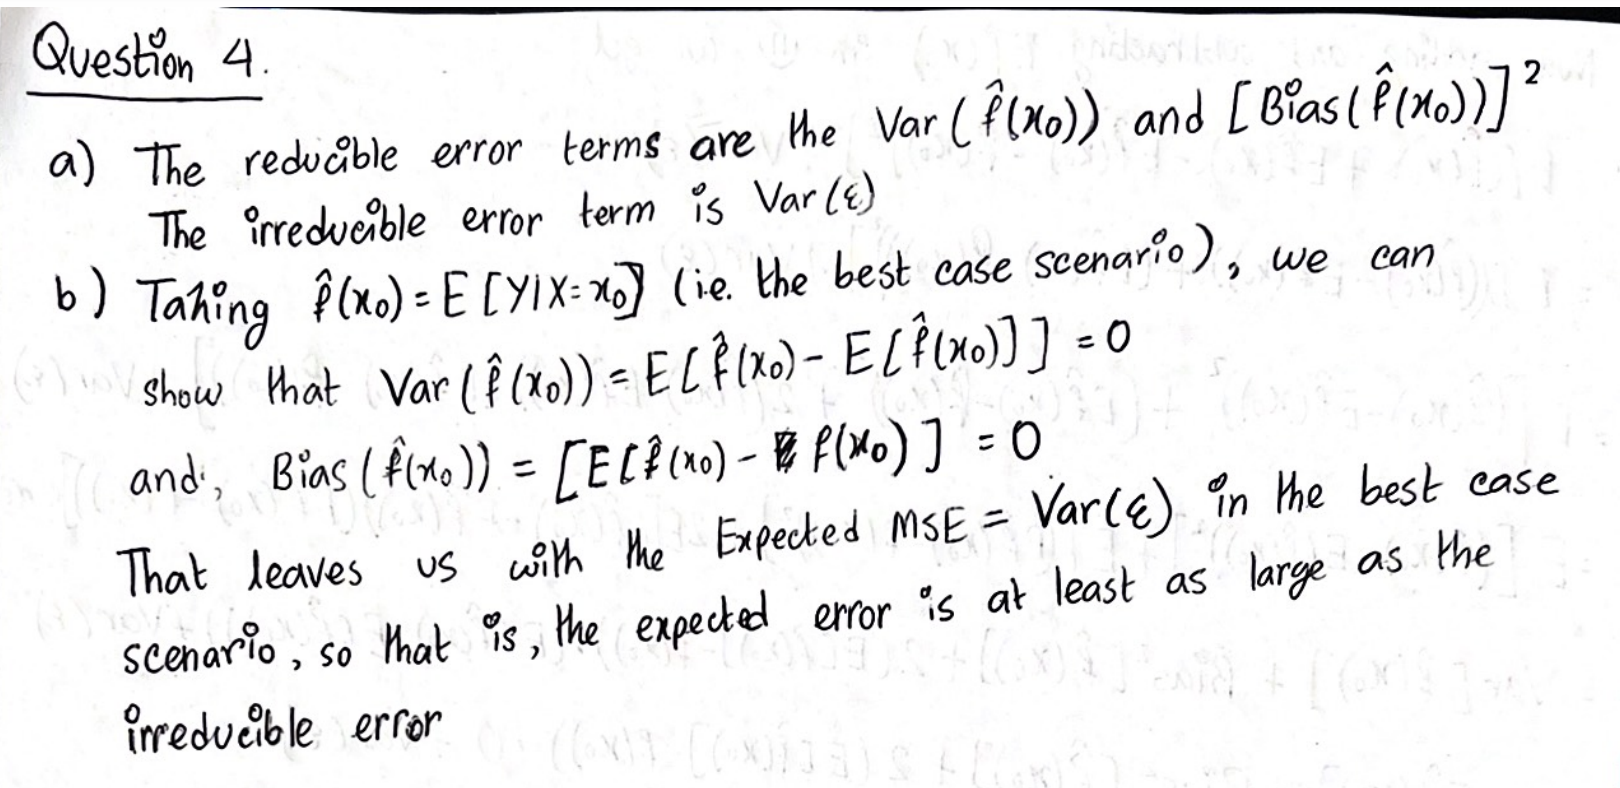 Question 4.
a) The reducible error terms are the Var(f̂(x₀)) and [Bias(f̂(x₀))]²
The irreducible error term is Var(ε)
b) Taking f̂(x₀) = E[Y|X=x₀] (i.e. the best case scenario), we can
show that Var(f̂(x₀)) = E[f̂(x₀) - E[f̂(x₀)]] = 0
and, Bias(f̂(x₀)) = [E[f̂(x₀) - f(x₀)] = 0
That leaves us with the Expected MSE = Var(ε) in the best case
scenario, so that is, the expected error is at least as large as the
irreducible error